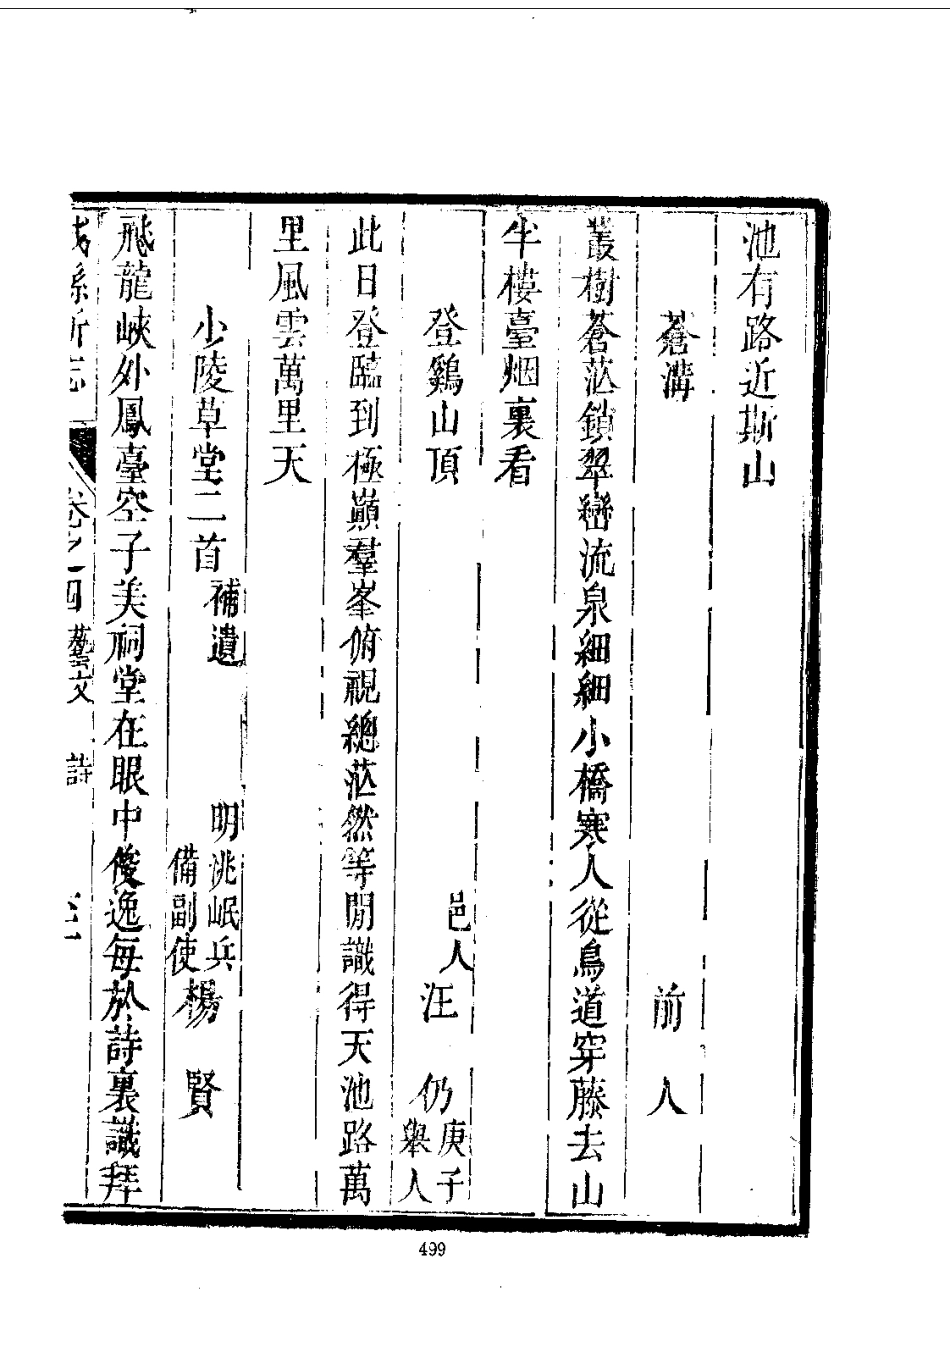 池有路近斯山
蒼溝 前人
叢樹蒼茫鎖翠巒流泉細細小橋寒人從鳥道穿藤去山
半樓臺烟裏看
登鷄山頂 邑人汪仍庚子舉人
此日登臨到極巔羣峯俯視總茫然等閒識得天池路萬
里風雲萬里天
少陵草堂二首 補遺 明洮岷兵備副使楊賢
飛龍峽外鳳臺空子美祠堂在眼中俊逸每於詩裏識拜
成縣新志 卷之四 藝文 詩
499